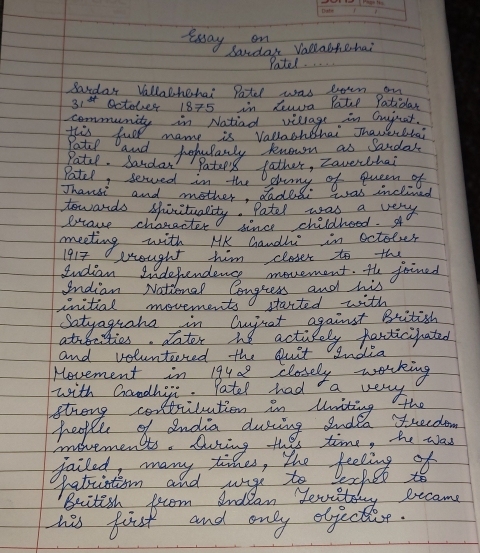 Essay on
Sardar Vallabhbhai
Patel......
Sardar Vallabhbhai Patel was born on
31st October 1875 in Leuva Patel Patidar
community in Natiad village in Gujrat.
His full name is Vallabhbhai Jhaverbhai
Patel and popularly known as Sardar
Patel. Sardar Patel's father, Zaverbhai
Patel, served in the Army of Queen of
Jhansi and mother, Ladbai was inclined
towards spirituality. Patel was a very
brave character since childhood. A
meeting with MK Gandhi in October
1917 brought him closer to the
Indian Independence movement. He joined
Indian National Congress and his
initial movements started with
Satyagraha in Gujrat against British
atrocities. Later he actively participated
and volunteered the Quit India
Movement in 1942 closely working
with Gandhiji. Patel had a very
strong contribution in Uniting the
people of India during India Freedom
movements. During this time, he was
jailed, many times, The feeling of
patriotism and urge to expel to
British from Indian Territory became
his first and only objective.